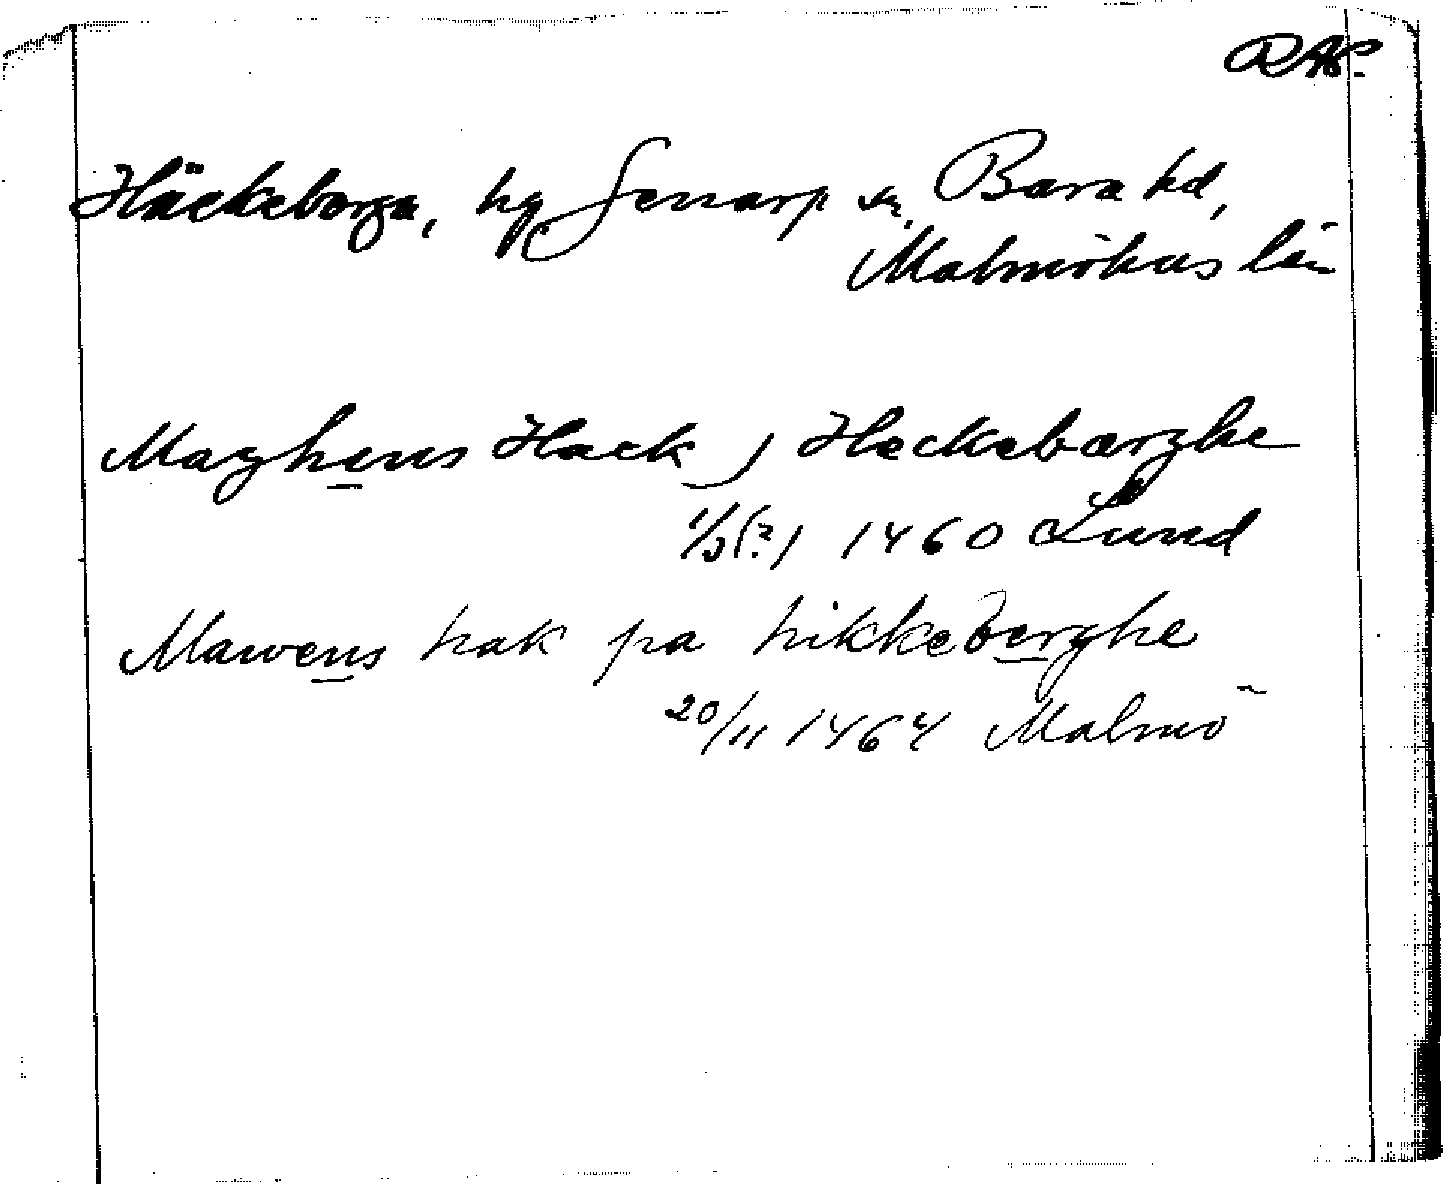 RAP.
Häckeberga, hg Genarp sn, Bara hd,
Malmöhus län
Maghens Hack j Heckebærghe
1/5(?) 1460 Lund
Mawens hak pa hikkeberghe
20/11 1464 Malmö